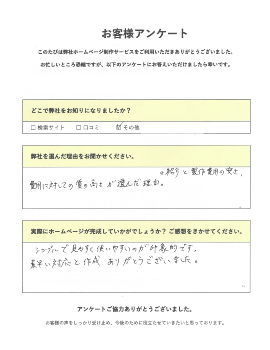 お客様アンケート
このたびは弊社ホームページ制作サービスをご利用いただきありがとうございました。
お忙しいところ恐縮ですが、以下のアンケートにお答えいただけましたら幸いです。
どこで弊社をお知りになりましたか？
□ 検索サイト □ 口コミ その他
弊社を選んだ理由をお聞かせください。
の紹介と製作費用の安さ、
費用に対しての質の高さが選んだ理由。
実際にホームページが完成していかがでしょうか？ ご感想をきかせてください。
シンプルで見やすく使いやすいのが印象的です。
素早い対応と作成 ありがとうございました。
アンケートご協力ありがとうございました。
お客様の声をしっかり受け止め、今後のために役立たせていきたいと思っております。